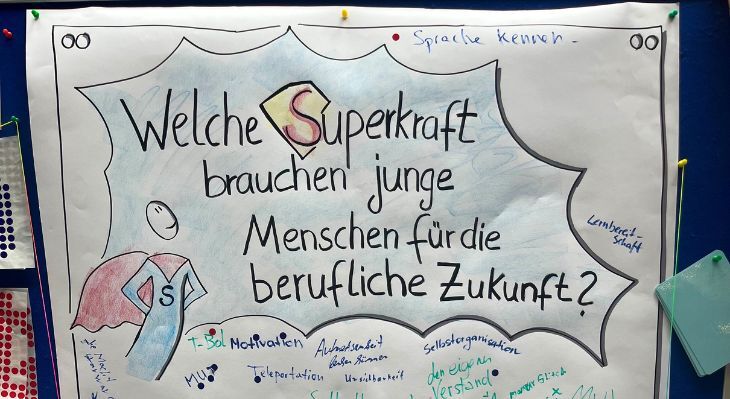 Sprache kennen
Welche Superkraft
brauchen junge
Menschen für die
berufliche Zukunft?
Lernbereit-
schaft
S
T-Bol Motivation
Selbstorganisation
MUT
Teleportation
Unsichtbarkeit
den eigenen
Verstand